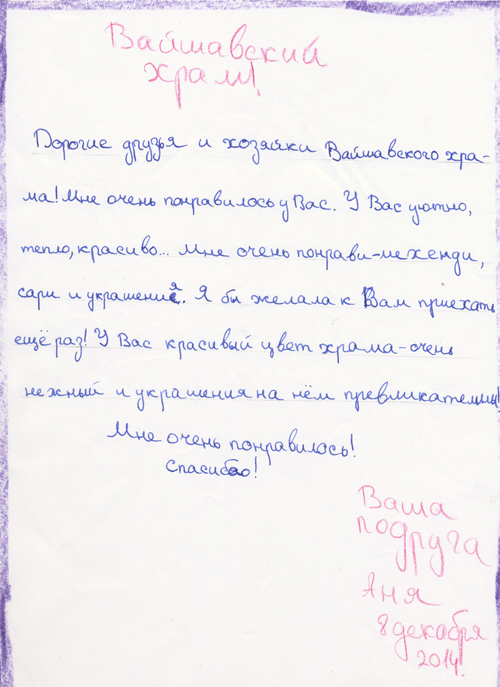 Вайшавский
храм!
Дорогие друзья и хозяйки Вайшавского хра-
ма! Мне очень понравилось у Вас. У Вас уютно,
тепло, красиво... Мне очень понрави-мехенди,
сари и украшения. Я бы желала к Вам приехать
ещё раз! У Вас красивый цвет храма-очень
нежный и украшения на нём превликательны!
Мне очень понравилось!
Спасибо!
Ваша
подруга
Аня
8 декабря
2014.